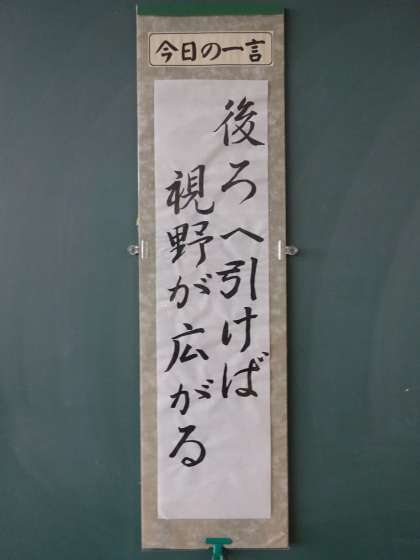 今日の一言
後ろへ引けば
視野が広がる